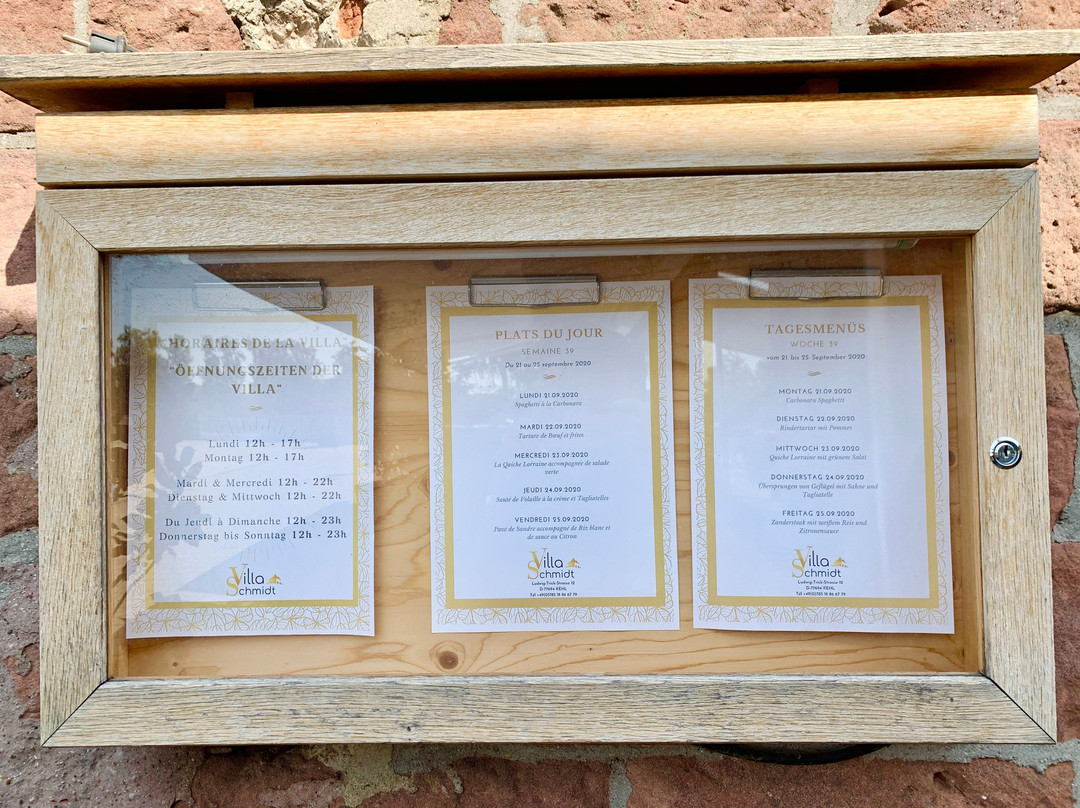 "HORAIRES DE LA VILLA"
"ÖEFNUNGSZEITEN DER
VILLA"
Lundi 12h - 17h
Montag 12h - 17h
Mardi & Mercredi 12h - 22h
Dienstag & Mittwoch 12h - 22h
Du Jeudi à Dimanche 12h - 23h
Donnerstag bis Sonntag 12h - 23h
Villa
Schmidt
PLATS DU JOUR
SEMAINE 39
Du 21 au 25 septembre 2020
LUNDI 21.09.2020
Spaghetti à la Carbonara
MARDI 22.09.2020
Tartare de Bœuf et frites
MERCREDI 23.09.2020
La Quiche Lorraine accompagnée de salade
verte
JEUDI 24.09.2020
Sauté de Volaille à la crème et Tagliatelles
VENDREDI 25.09.2020
Pavé de Sandre accompagné de Riz blanc et
de sauce au Citron
Villa
Schmidt
Ludwig-Trick-Strasse 12
D-77694 KEHL
Tél +49(0)785 18 86 67 79
TAGESMENÜS
WOCHE 39
vom 21. bis 25. September 2020
MONTAG 21.09.2020
Carbonara Spaghetti
DIENSTAG 22.09.2020
Rindertartar mit Pommes
MITTWOCH 23.09.2020
Quiche Lorraine mit grünem Salat
DONNERSTAG 24.09.2020
Übersprungen von Geflügel mit Sahne und
Tagliatelle
FREITAG 25.09.2020
Zandersteak mit weißem Reis und
Zitronensauce
Villa
Schmidt
Ludwig-Trick-Strasse 12
D-77694 KEHL
Tél +49(0)785 18 86 67 79